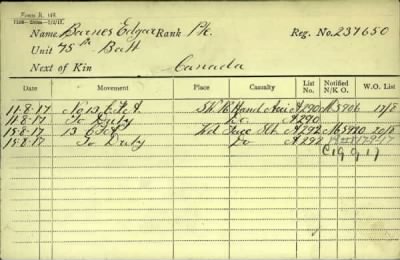 FORM R. 149.
Name Barnes Edgar Rank Pte. Reg. No. 237650
Unit 75th Batt
Next of Kin Canada
Date Movement Place Casualty List No. Notified N/K O. W.O. List
11-8-17 No 13 C.F.A. S.W. R Hand A290 M5906 17/8
11-8-17 To Duty Do. A290
15-8-17 13 CFA Wd Face A292 M5920 20/8
15-8-17 To Duty Do A292
C 19 9 17